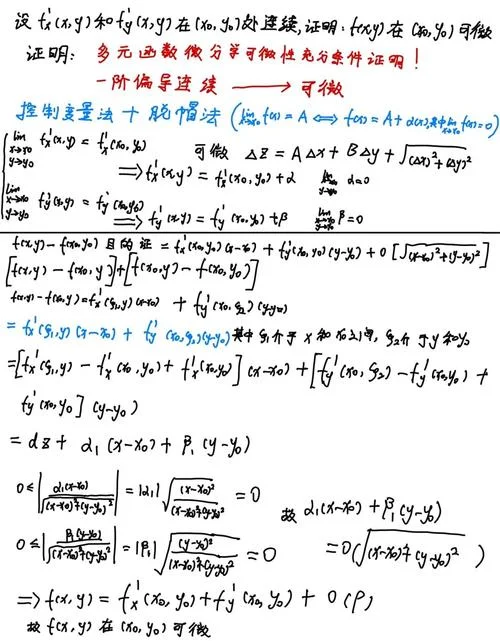 设 f'x(x,y)和f'y(x,y)在(x0,y0)处连续,证明:f(x,y)在(x0,y0)可微
证明: 多元函数微分学可微性充分条件证明!
一阶偏导连续 ⟶ 可微
控制变量法+脱帽法 (lim x→x0 f(x)=A ⟺ f(x)=A+α(x),其中lim x→x0 f(x)=0)
lim x→x0 y→y0 f'x(x,y) = f'x(x0,y0) 可微 Δz = AΔx + BΔy + √((Δx)²+(Δy)²)
⟹ f'x(x,y) = f'x(x0,y0) + α lim x→x0 y→y0 α=0
lim x→x0 y→y0 f'y(x,y) = f'y(x0,y0)
⟹ f'y(x,y) = f'y(x0,y0) + β lim x→x0 y→y0 β=0
f(x,y) - f(x0,y0) 目的证 = f'x(x0,y0)(x-x0) + f'y(x0,y0)(y-y0) + o[√((x-x0)²+(y-y0)²)]
[f(x,y) - f(x0,y)]+[f(x0,y) - f(x0,y0)]
f(x,y) - f(x0,y) = f'x(ξ1,y)(x-x0) + f'y(x0,ξ2)(y-y0)
= f'x(ξ1,y)(x-x0) + f'y(x0,ξ2)(y-y0) 其中ξ1介于x和x0之间, ξ2介于y和y0
=[f'x(ξ1,y) - f'x(x0,y0) + f'x(x0,y0)](x-x0) + [f'y(x0,ξ2) - f'y(x0,y0) +
f'y(x0,y0)](y-y0)
= dz + α1(x-x0) + β1(y-y0)
0≤|α1(x-x0)/√((x-x0)²+(y-y0)²)| = |α1|√((x-x0)²/((x-x0)²+(y-y0)²)) = 0
故 α1(x-x0) + β1(y-y0)
0≤|β1(y-y0)/√((x-x0)²+(y-y0)²)| = |β1|√((y-y0)²/((x-x0)²+(y-y0)²)) = 0
=0(√((x-x0)²+(y-y0)²))
⟹ f(x,y) = f'x(x0,y0) + f'y(x0,y0) + 0(ρ)
故 f(x,y) 在(x0,y0)可微